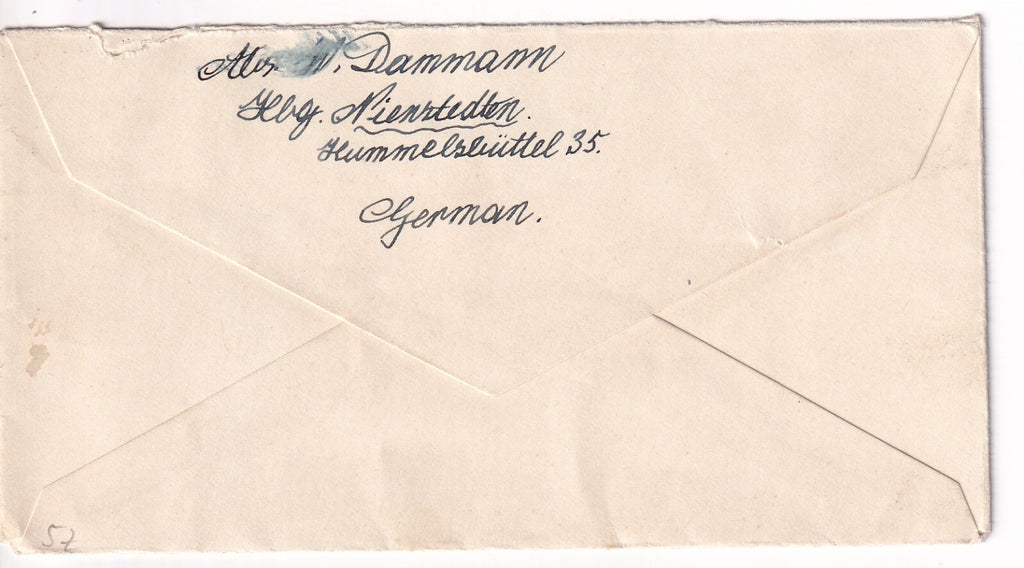 Abs. W. Dammann
Hbg. Nienstedten.
Hummelsbüttel 35.
German.
57